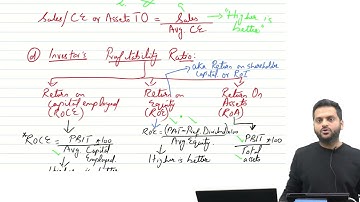 Sales/CE or Assets TO = Sales "Higher is
Avg. CE better"
(d) Investor's Profitability Ratio:
aka Return on shareholder
Capital or RoI
Return on Return on Return On
Capital employed Equity Assets
(ROCE) (ROE) (ROA)
*ROCE = PBIT *100 ROE = (PAT-Pref Dividend)*100 PBIT *100
Avg. Capital Avg Equity. Total
Employed. Higher is better assets
Higher is better